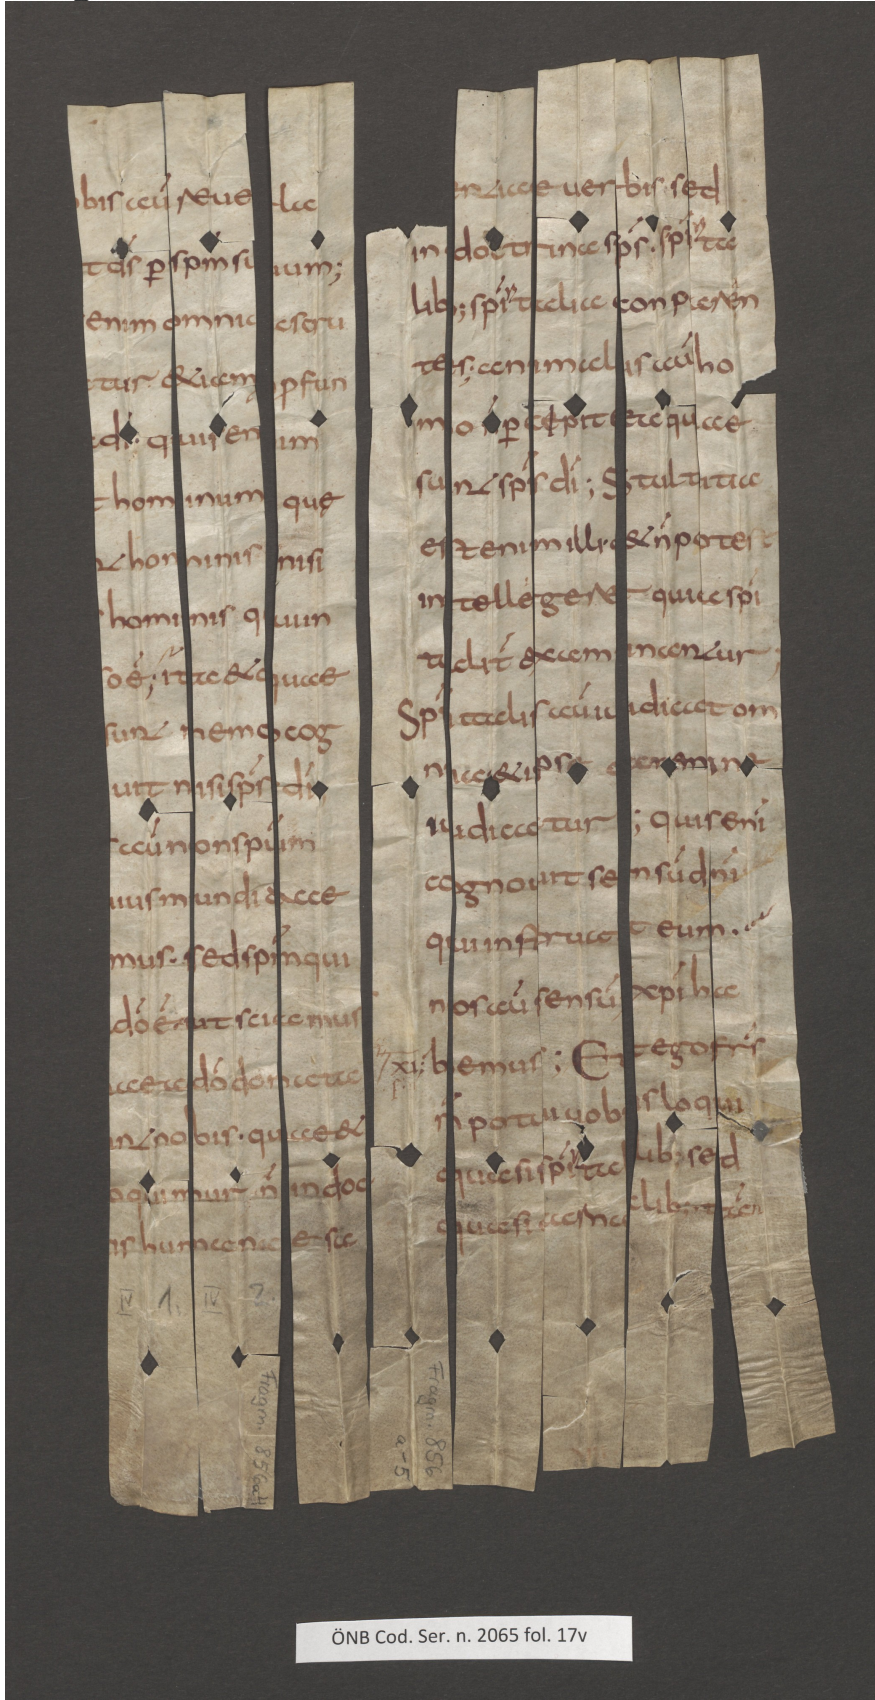 bis aū reuela
t ds̄ ꝑ spm̄ suum;
enim omnia scru
atur & iam pfun
a di̅· quis enim
t hominum quę
nt hominis nisi
s hominis qui in
so ē; ita & quae
sunt nemo cog
uit nisi sps̄ di̅
s aū non spūm
uius mundi acce
mus· sed spm̄ qui
dō ē· ut sciamus
ae a dō donata
unt nobis· quae &
oquimur n̄ in doc
is humanae sa
entiae uerbis· sed
in doctrina sps̄· spīta
lib; spītalia conparan
tes; animalis aū ho
mo n̄ ꝑcepit ea quae
sunt sps̄ di̅; Stultitia
est enim illi· & n̄ potest
intellegere quia spi
talit̄ examinantur;
Spītalis aū iudicat om
nia & ipse a nemine
iudicatur; quis eni̅
cognouit sensū dn̄i
qui instruat eum·
nos aū sensū xp̄i ha
XI; bemus; Et ego frīs
n̄ potui uobis loqui
quasi spītalib; sed
quasi carnalib; tāen
IV 1. IV 2.
Fragm. 856a-4
Fragm. 856
a-5
ÖNB Cod. Ser. n. 2065 fol. 17v